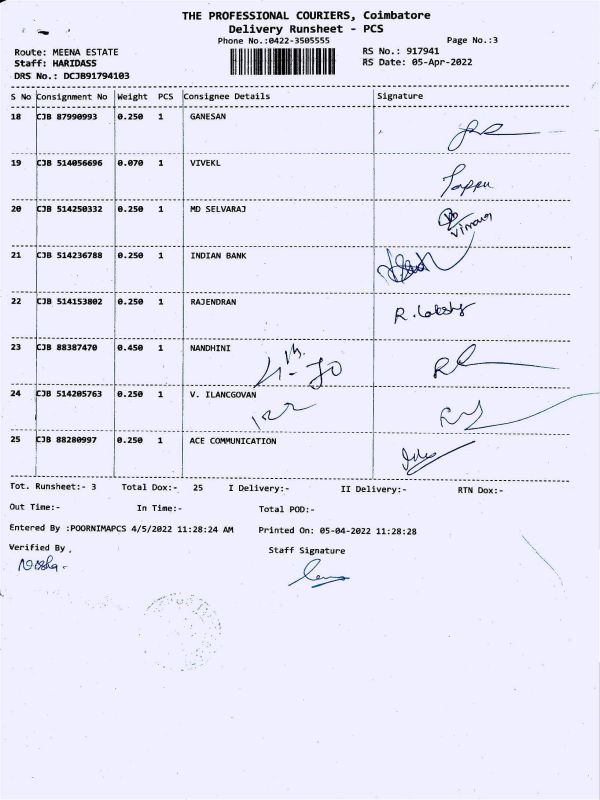 THE PROFESSIONAL COURIERS, Coimbatore
Delivery Runsheet - PCS
Phone No.:0422-3505555
Page No.:3
Route: MEENA ESTATE
RS No.: 917941
Staff: HARIDASS
RS Date: 05-Apr-2022
DRS No.: DCJB91794103
S No Consignment No Weight PCS Consignee Details Signature
18 CJB 87990993 0.250 1 GANESAN
19 CJB 514056696 0.070 1 VIVEKL
20 CJB 514250332 0.250 1 MD SELVARAJ
21 CJB 514236788 0.250 1 INDIAN BANK
22 CJB 514153802 0.250 1 RAJENDRAN
23 CJB 88387470 0.450 1 NANDHINI
24 CJB 514205763 0.250 1 V. ILANCGOVAN
25 CJB 88280997 0.250 1 ACE COMMUNICATION
Tot. Runsheet:- 3 Total Dox:- 25 I Delivery:- II Delivery:- RTN Dox:-
Out Time:- In Time:- Total POD:-
Entered By :POORNIMAPCS 4/5/2022 11:28:24 AM Printed On: 05-04-2022 11:28:28
Verified By , Staff Signature